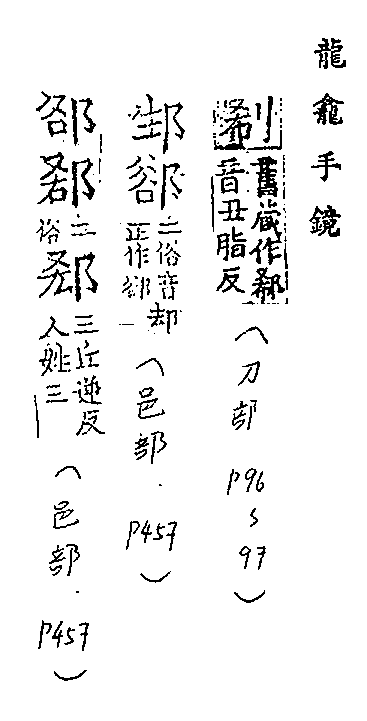 龍龕手鏡
𠜾舊藏作郗音丑脂反(刀部 P96~97)
二俗音却正作郤(邑部.P457)
二俗郄三丘逆反人姓三(邑部.P457)